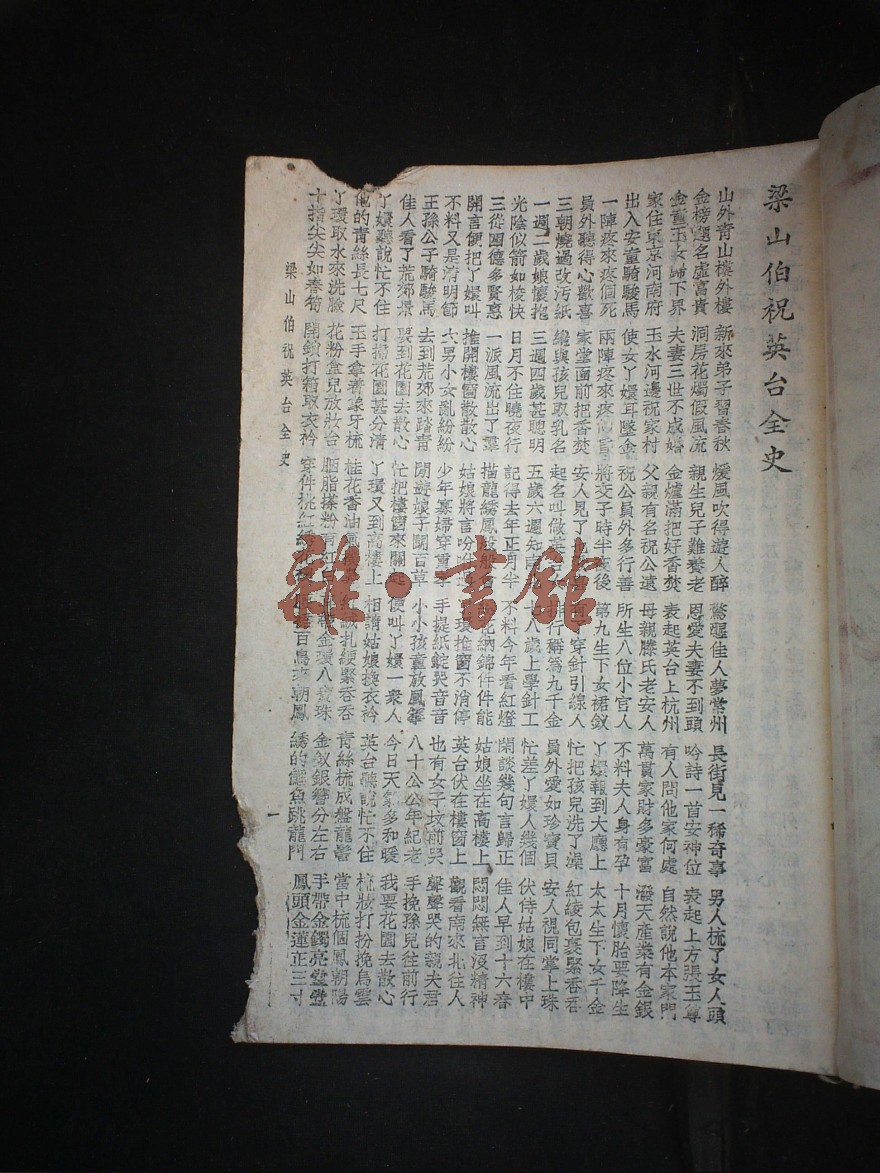 梁山伯祝英台全史
山外青山樓外樓 新來弟子習春秋 煖風吹得遊人醉 驚醒佳人夢常州 長街見一稀奇事 男人梳了女人頭
金榜題名虛富貴 洞房花燭假風流 親生兒子難養老 恩愛夫妻不到頭 吟詩一首安神位 表起上方張玉尊
金童玉女歸下界 夫妻三世不成婚 金爐滿把好香焚 表起英台上杭州 有人問他家何處 自然說他本家門
家住東京河南府 玉水河邊祝家村 父親有名祝公遠 母親滕氏老安人 萬貫家財多豪富 潑天產業有金銀
出入安童騎駿馬 使女丫嬛耳墜金 祝公員外多行善 所生八位小官人 不料夫人身有孕 十月懷胎要降生
一陣疼來疼個死 兩陣疼來疼 將交子時半夜後 第九生下女裙釵 丫嬛報到大廳上 太太生下女千金
員外聽得心歡喜 家堂面前把香焚 安人見了 穿針引線人 忙把孩兒洗了澡 紅綾包裹緊吞吞
三朝燒過改污紙 纔與孩兒取乳名 起名叫做英 行稱為九千金 員外愛如珍寶貝 安人視同掌上珠
一週二歲娘懷抱 三週四歲甚聰明 五歲六週知 八歲上學針工 忙差丫嬛人幾個 伏侍姑娘在樓中
光陰似箭如梭快 日月不住曉夜行 記得去年正月半 不料今年看紅燈 閑談幾句言歸正 佳人早到十六春
三從四德多賢惠 一派風流出了羣 描龍綉鳳 花納錦件件能 姑娘坐在高樓上 悶悶無言沒精神
開言便把丫嬛叫 推開樓窗散散心 姑娘將言吩 環推窗不消停 英台伏在樓窗上 觀看南來北往人
不料又是清明節 大男小女亂紛紛 少年寡婦穿重孝 手提紙錠哭音音 也有女子坟前哭 聲聲哭的親夫君
王孫公子騎駿馬 去到荒郊來踏青 閑遊娘子鬬百草 小小孩童放風箏 八十公公年紀老 手挽孫兒往前行
佳人看了荒郊景 要到花園去散心 忙把樓窗來關起 便叫丫嬛一衆人 今日天氣多和暖 我要花園去散心
丫嬛聽說忙不住 打掃花園甚分清 丫環又到高樓上 相請姑娘換衣衿 英台聽說忙不住 梳妝打扮挽烏雲
他的青絲長七尺 玉手拿着象牙梳 桂花香油 扎綆緊吞吞 青絲梳成盤龍髻 當中梳個鳳朝陽
丫環取水來洗臉 花粉盒兒放妝台 胭脂搽粉 金環八寶珠 金釵銀簪分左右 手帶金鐲亮堂堂
十指尖尖如春筍 開鎖打箱取衣衿 穿件桃紅 百鳥來朝鳳 綉的鯉魚跳龍門 鳳頭金蓮正三寸
梁山伯祝英台全史
一
雜·書館